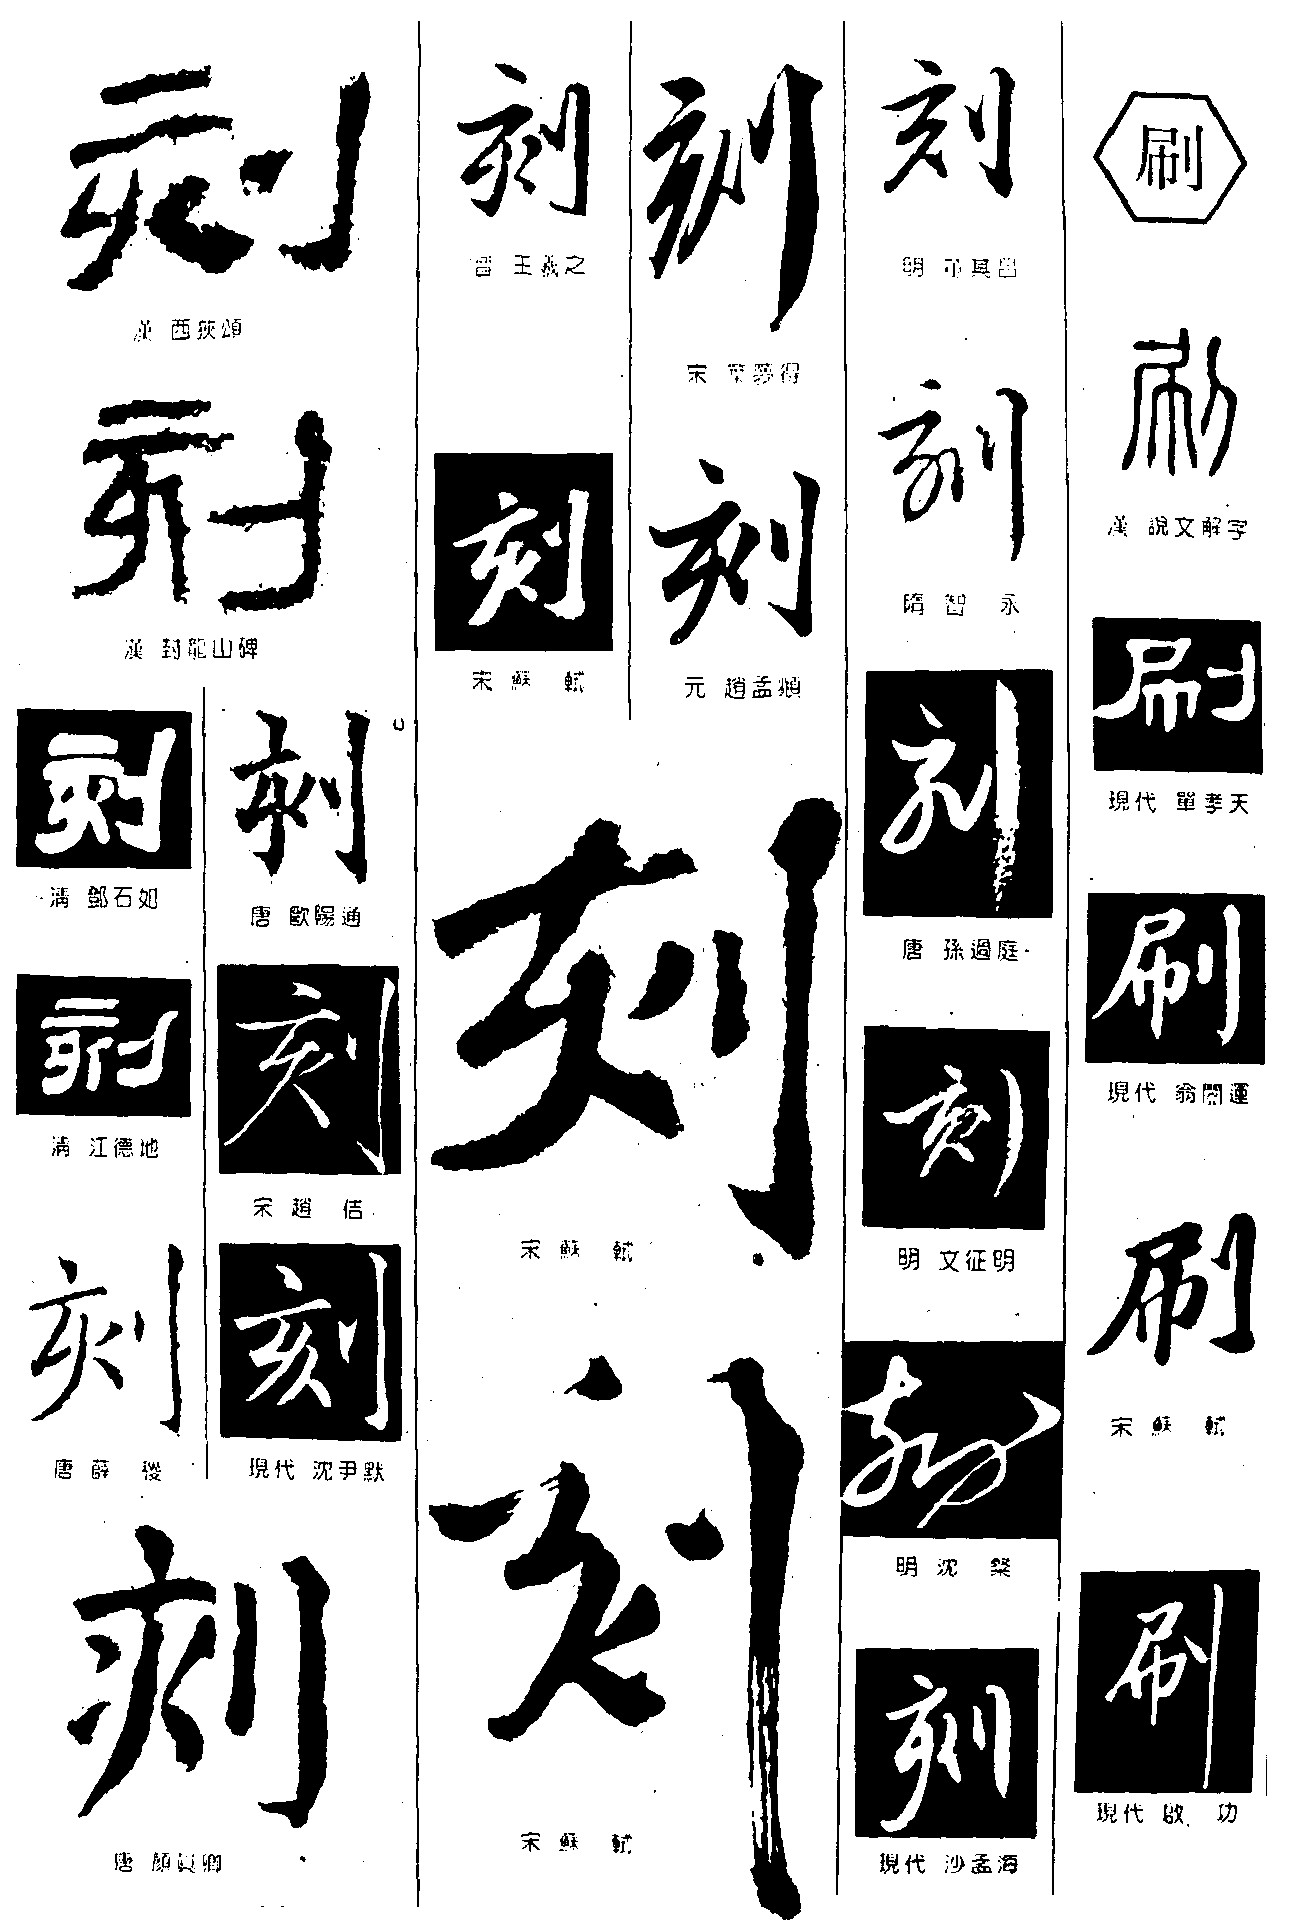 刷
刷
漢 說文解字
刷
現代 單孝天
刷
現代 翁闓運
刷
宋 蘇 軾
刷
現代 啟 功
刻
明 董其昌
刻
隋 智 永
刻
唐 孫過庭
刻
明 文征明
刻
明 沈 粲
刻
現代 沙孟海
刻
宋 葉夢得
刻
元 趙孟頫
刻
晉 王羲之
刻
宋 蘇 軾
刻
宋 蘇 軾
刻
宋 蘇 軾
刻
漢 西狹頌
刻
漢 封龍山碑
刻
唐 歐陽通
刻
宋 趙 佶
刻
現代 沈尹默
刻
清 鄧石如
刻
清 江德地
刻
唐 薛 稷
刻
唐 顏真卿